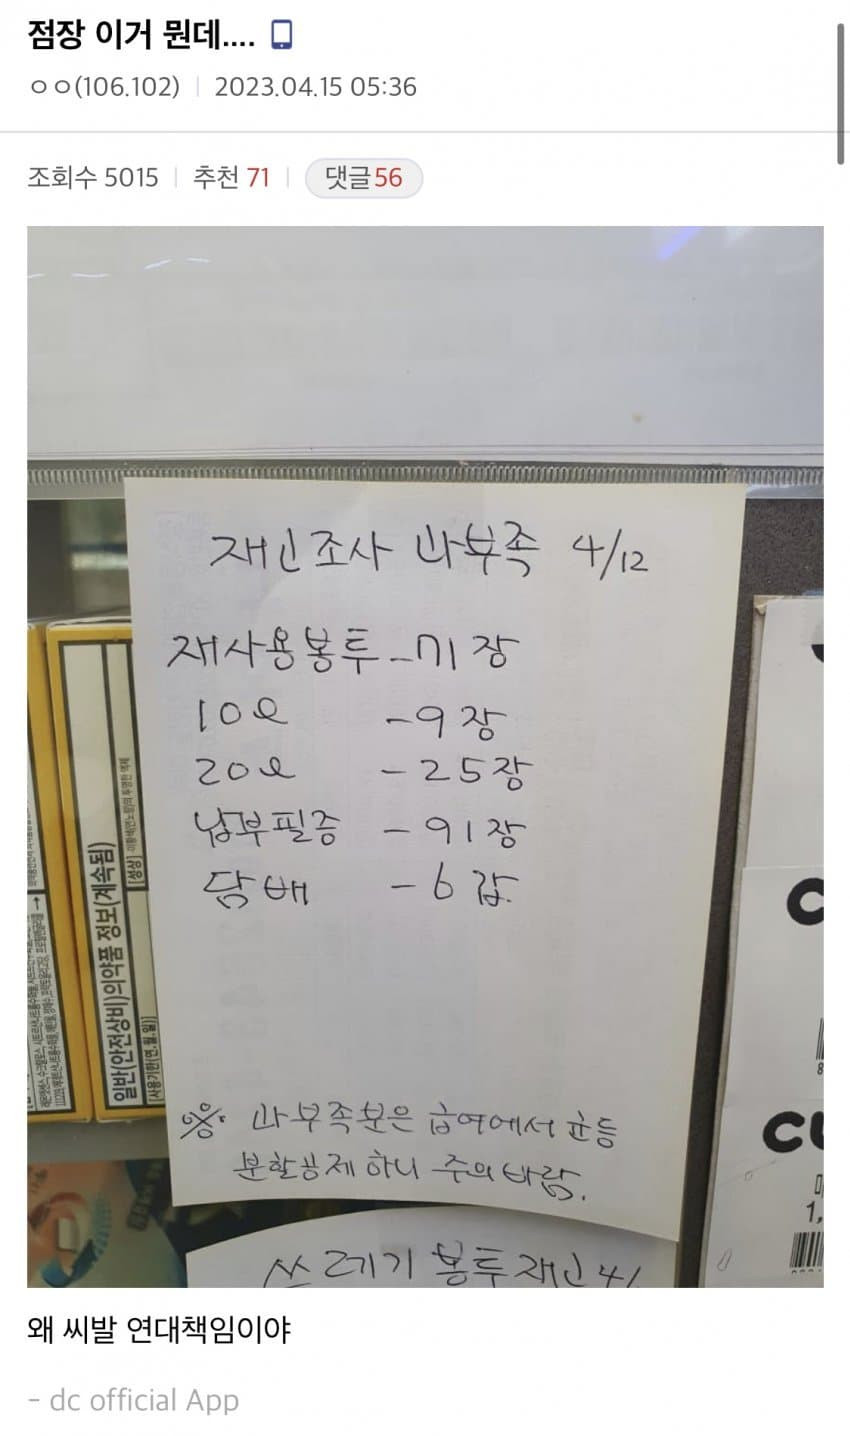 점장 이거 뭔데....
ㅇㅇ(106.102) | 2023.04.15 05:36
조회수 5015 | 추천 71 | 댓글 56
재인조사 과부족 4/12
재사용봉투 -71장
10ℓ -9장
20ℓ -25장
납부필증 -91장
담배 -6갑
일반(안전상비)의약품 정보(계속됨)
[성상]
[사용기한(연,월,일)]
※ 과부족분은 급여에서 균등
분할공제 하니 주의 바람.
쓰레기 봉투재인 4/
CU
1,
왜 씨발 연대책임이야
- dc official App